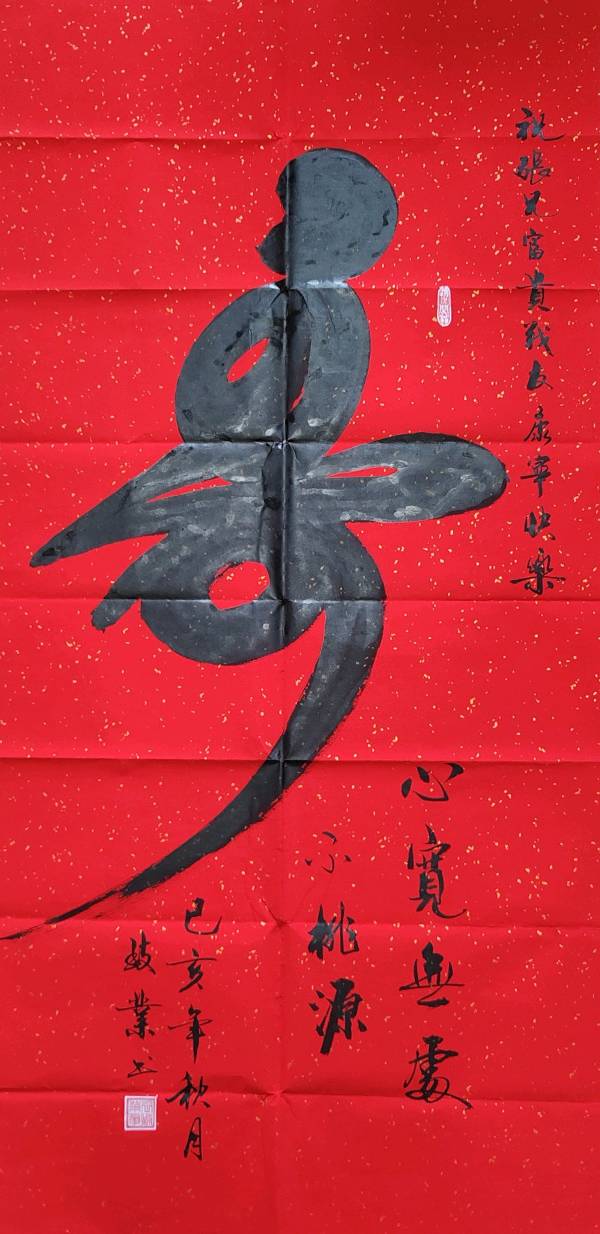 祝張兄富貴戰友康寧快樂
寿
心寬無處
不桃源
己亥年秋月
業书